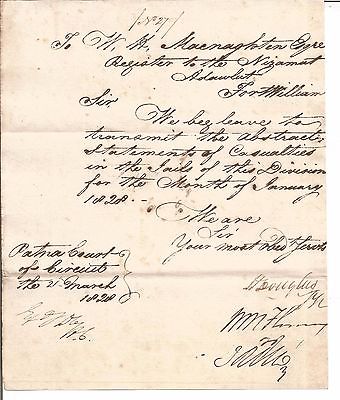 No 27
To W. H. Macnaghten Esqre
Register to the Nizamat
Adawlut
Fort William
Sir
We beg leave to
transmit the Abstract
Statements of Casualties
in the Jails of this Division
for the Month of January
1828.
We are
Sir
Your most Obet Servts
Patna Court
of Circuit
the 21 March
1828
H Douglas